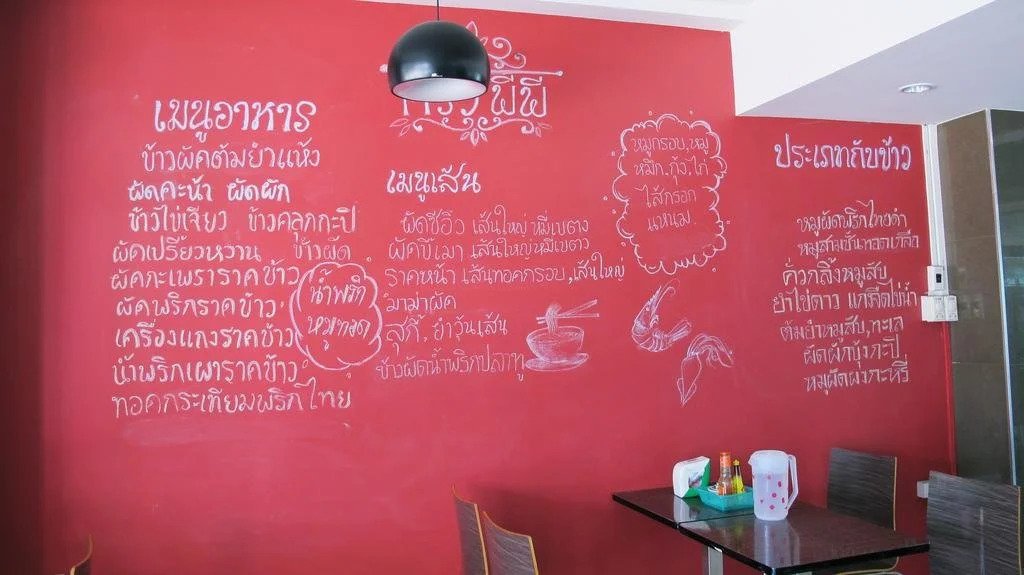 ครัว พีพี
เมนูอาหาร
ข้าวผัดต้มยำแห้ง
ผัดคะน้า ผัดผัก
ข้าวไข่เจียว ข้าวคลุกกะปิ
ผัดเปรี้ยวหวาน ข้าวผัด
ผัดกะเพราราดข้าว
ผัดพริกราดข้าว
เครื่องแกงราดข้าว
น้ำพริกเผาราดข้าว
ทอดกระเทียมพริกไทย
น้ำพริก
หมูทอด
เมนูเส้น
ผัดซีอิ๊ว เส้นใหญ่ หมี่เบตง
ผัดขี้เมา เส้นใหญ่หมี่เบตง
ราดหน้า เส้นทอดกรอบ,เส้นใหญ่
มาม่าผัด
สุกี้, ยำวุ้นเส้น
ข้าวผัดน้ำพริกปลาทู
หมูกรอบ,หมู
หมึก.กุ้ง.ไก่
ไส้กรอก
แหนม
ประเภทกับข้าว
หมูผัดพริกไทยดำ
หมูสามชั้นทอดเกลือ
คั่วกลิ้งหมูสับ
ยำไข่ดาว แกงจืดไข่น้ำ
ต้มยำหมูสับ,ทะเล
ผัดผักบุ้งกะปิ
หมูผัดผงกะหรี่